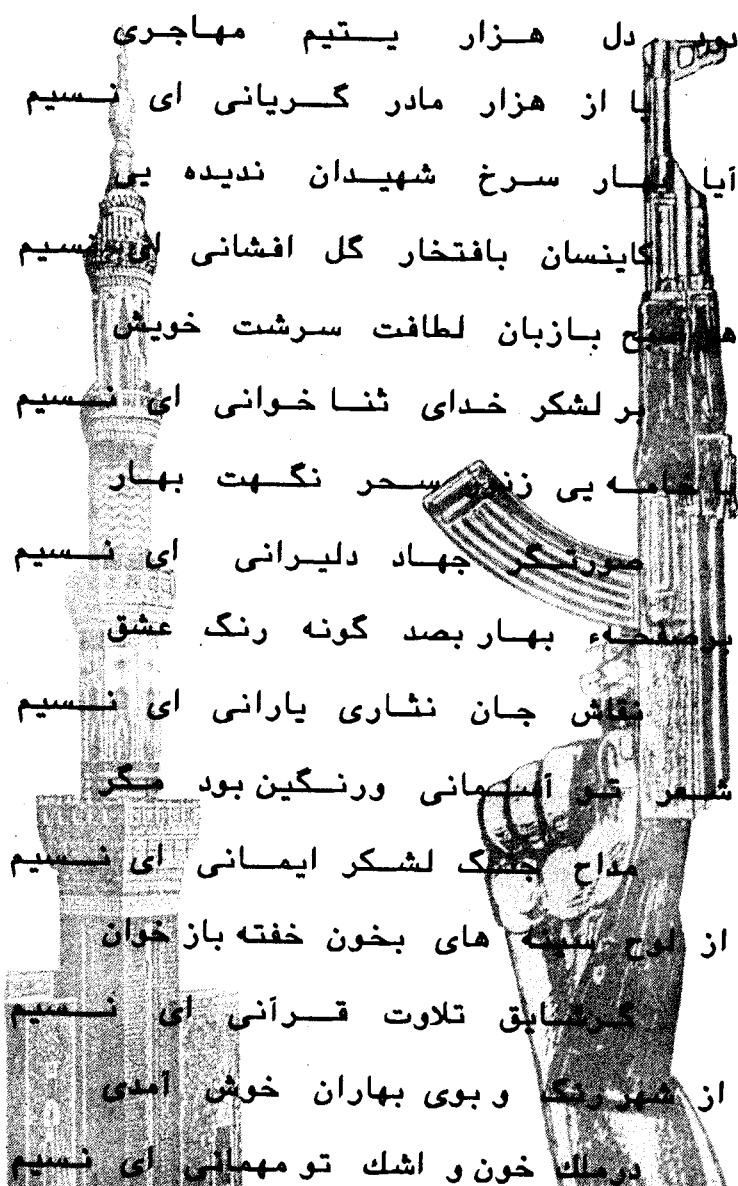 بود دل هزار یتیم مهاجری
یا از هزار مادر گریانی ای نسیم
آیا بهار سرخ شهیدان ندیده یی
کاینسان بافتخار گل افشانی ای نسیم
هر صبح بازبان لطافت سرشت خویش
بر لشکر خدای ثنا خوانی ای نسیم
با خامه یی زنش سحر نگهت بهار
صورتگر جهاد دلیرانی ای نسیم
برصفحهء بهار بصد گونه رنگ عشق
نقاش جان نثاری یارانی ای نسیم
شعر تو آسمانی ورنگین بود مگر
مداح جنگ لشکر ایمانی ای نسیم
از لوح سینه های بخون خفته باز خوان
گرشایق تلاوت قرآنی ای نسیم
از شهر رنگ و بوی بهاران خوش آمدی
درملك خون و اشك تو مهمانی ای نسیم